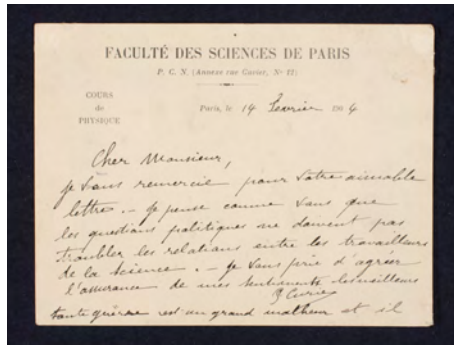 FACULTÉ DES SCIENCES DE PARIS
P. C. N. (Annexe rue Cuvier, No 12)
COURS
de
PHYSIQUE
Paris, le 14 Février 1904
Cher Monsieur,
je vous remercie pour votre aimable
lettre. — Je pense comme vous que
les questions politiques ne doivent pas
troubler les relations entre les travailleurs
de la Science. — Je vous prie d'agréer
l'assurance de mes sentiments les meilleurs
P. Curie
toute guerre est un grand malheur et il